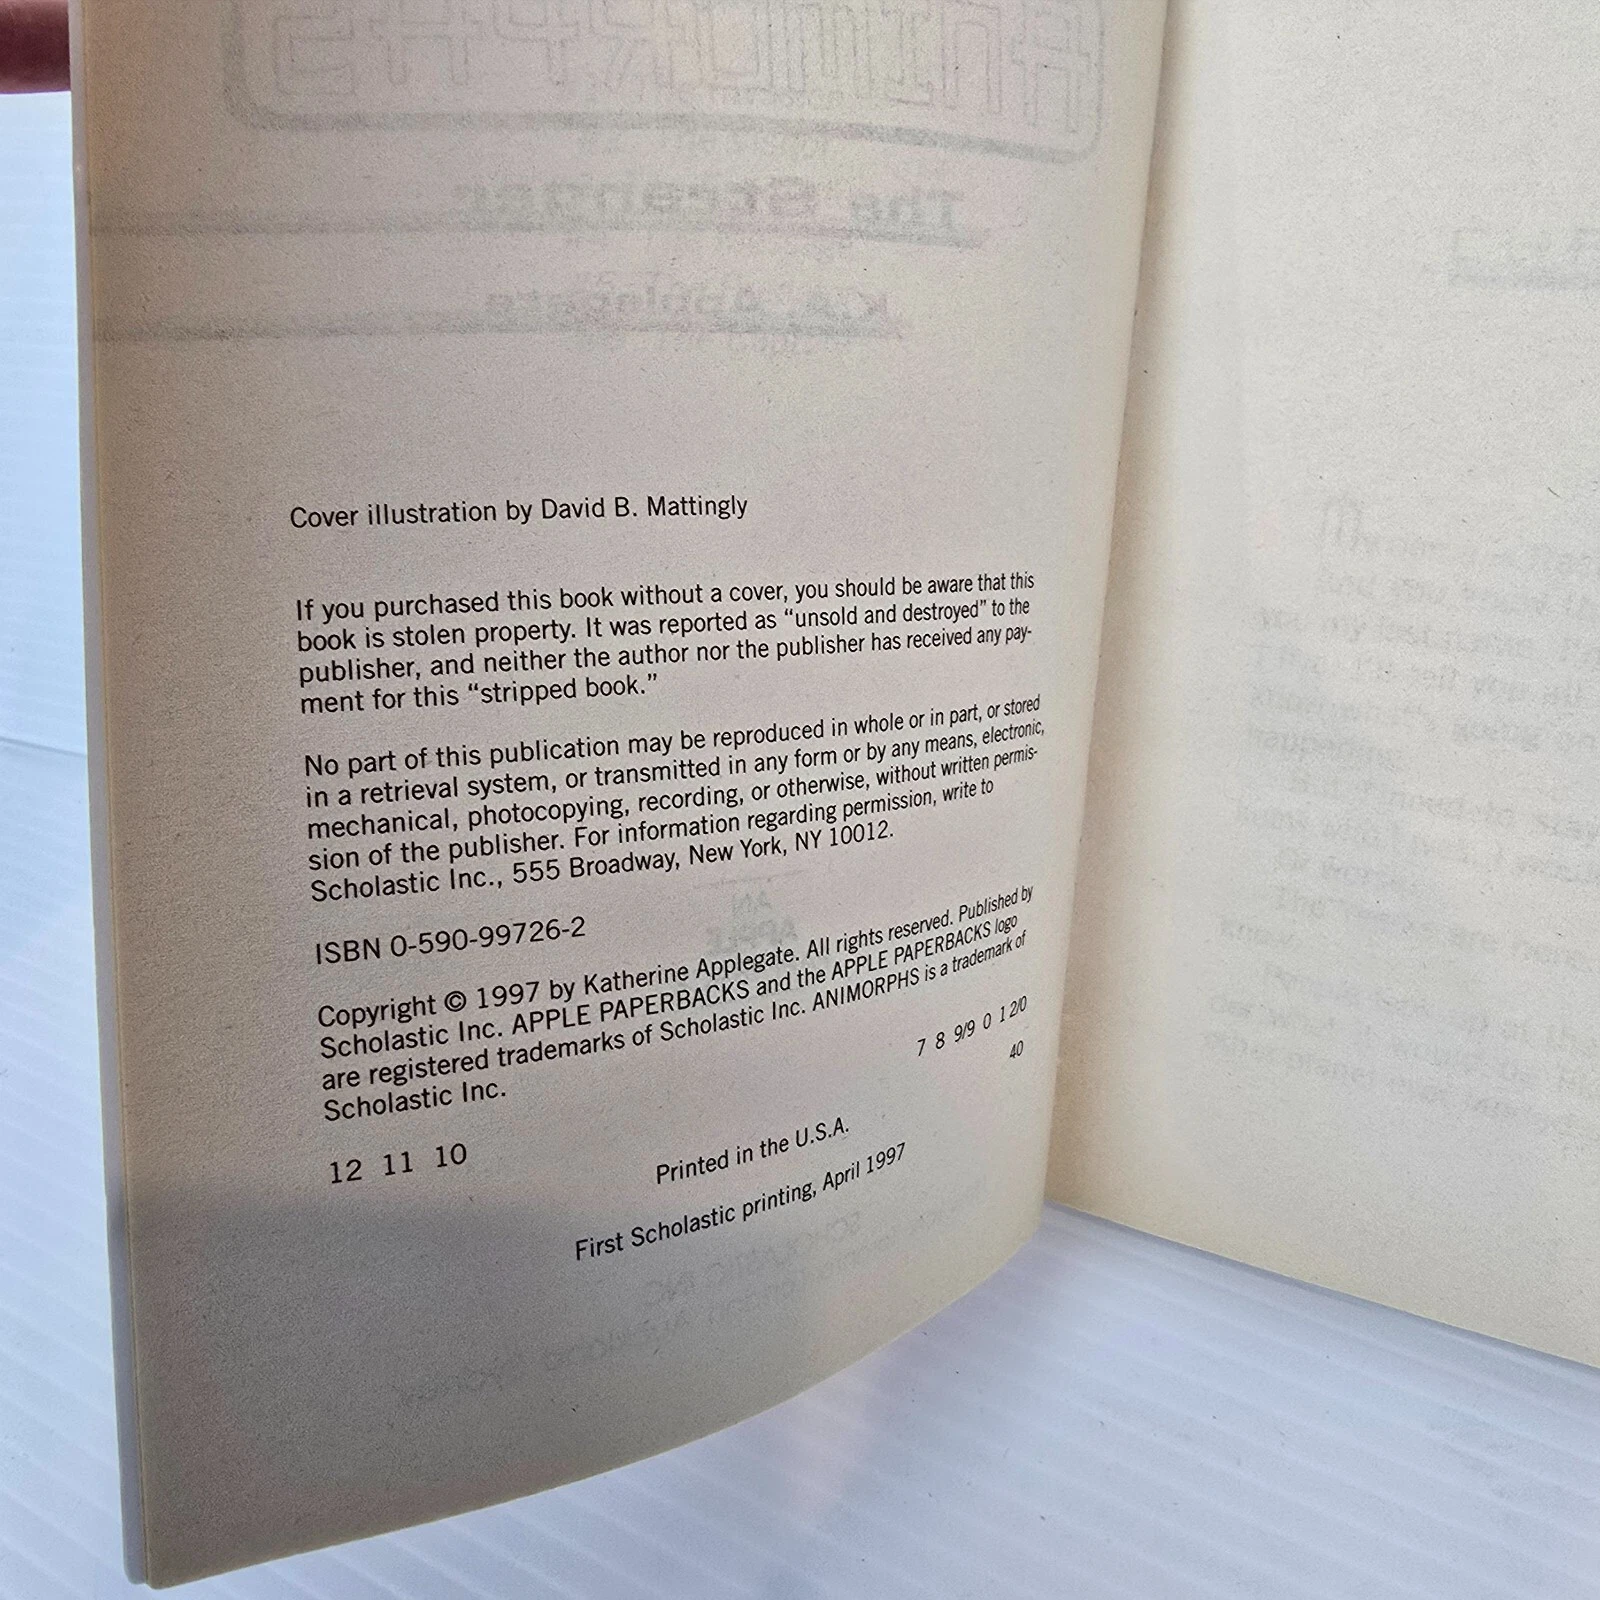 Cover illustration by David B. Mattingly
If you purchased this book without a cover, you should be aware that this
book is stolen property. It was reported as “unsold and destroyed” to the
publisher, and neither the author nor the publisher has received any pay-
ment for this “stripped book.”
No part of this publication may be reproduced in whole or in part, or stored
in a retrieval system, or transmitted in any form or by any means, electronic,
mechanical, photocopying, recording, or otherwise, without written permis-
sion of the publisher. For information regarding permission, write to
Scholastic Inc., 555 Broadway, New York, NY 10012.
ISBN 0-590-99726-2
Copyright © 1997 by Katherine Applegate. All rights reserved. Published by
Scholastic Inc. APPLE PAPERBACKS and the APPLE PAPERBACKS logo
are registered trademarks of Scholastic Inc. ANIMORPHS is a trademark of
Scholastic Inc.
12 11 10 7 8 9/9 0 1 2/0
40
Printed in the U.S.A.
First Scholastic printing, April 1997